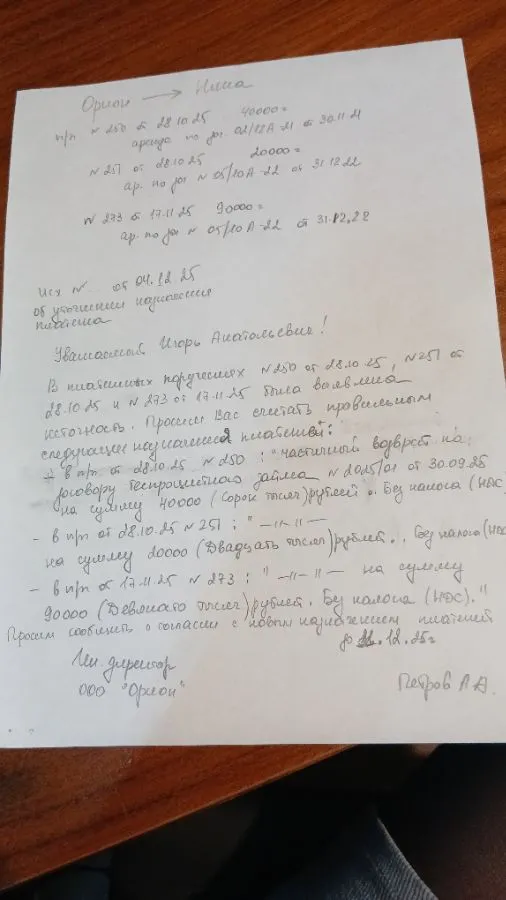 Орион → Нина
п/п N 250 от 28.10.25 40000=
аренда по дог. 02/12А-21 от 30.11.21
N 251 от 28.10.25 20000=
ар. по дог N 05/10А-22 от 31.12.22
N 273 от 17.11.25 90000=
ар. по дог N 05/10А-22 от 31.12.22
исх N... от 04.12.25
об уточнении назначения
платежа
Уважаемый Игорь Анатольевич!
В платежных поручениях N250 от 28.10.25, N251 от
28.10.25 и N 273 от 17.11.25 была выявлена
неточность. Просим Вас считать правильным
следующее назначения платежей:
- в п/п от 28.10.25 N 250: "частичный возврат по
договору беспроцентного займа N 2025/01 от 30.09.25
на сумму 40000 (Сорок тысяч) рублей.. Без налога (НДС)
- в п/п от 28.10.25 N 251: " —〃—〃—
на сумму 20000 (Двадцать тысяч) рублей.. Без налога (НДС
- в п/п от 17.11.25 N 273: " —〃—〃— на сумму
90000 (Девяносто тысяч) рублей. Без налога (НДС)."
Просим сообщить о согласии с новым назначением платежей
до .12.25г
Ген. директор
ООО "Орион"
Петров А.А.